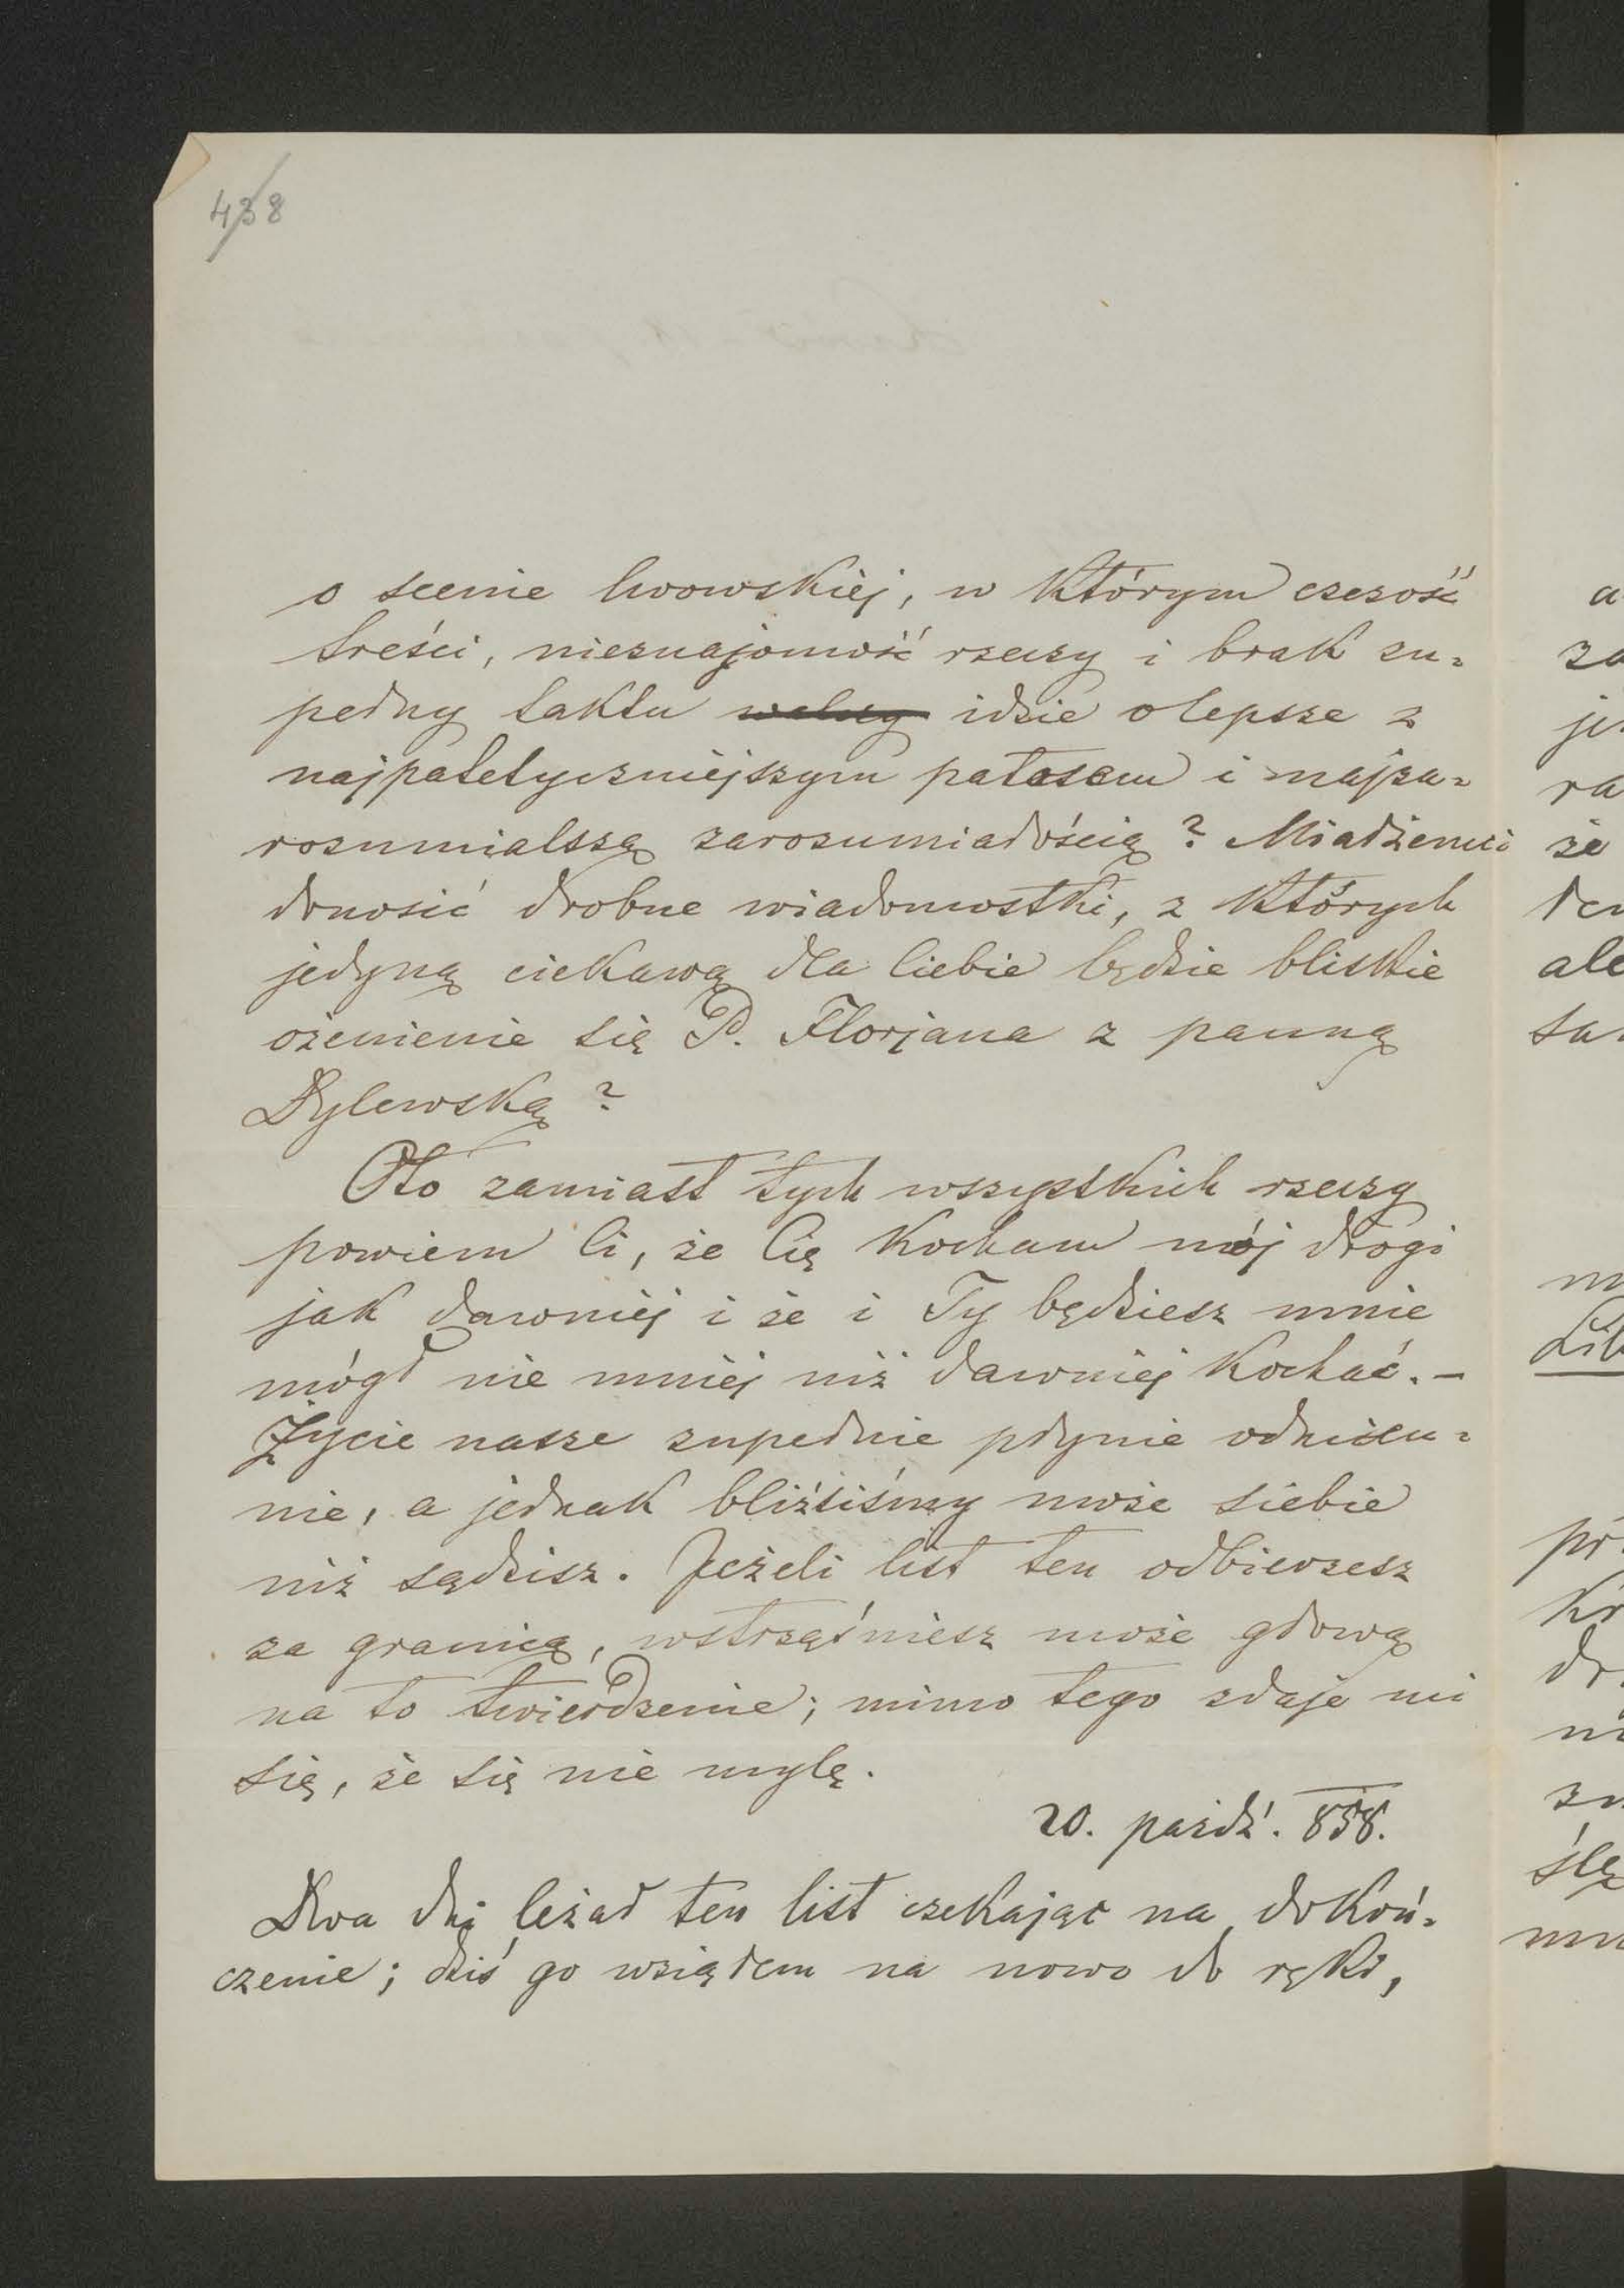 438
o scenie lwowskiéj, w którym czczość
treści, nieznajomość rzeczy i brak zu-
pełny taktu idzie o lepsze z
najpatetyczniejszym patosem i najza-
rozumialszą zarozumiałością? Miałżem ci
donosić drobne wiadomostki, z których
jedyną ciekawą dla Ciebie będzie bliskie
ożenienie się P. Florjana z panną
Dylewską?
Oto zamiast tych wszystkich rzeczy
powiem Ci, że Cię kocham mój drogi
jak dawniéj i że i Ty będziesz mnie
mógł nie mniéj niż dawniéj kochać. –
Życie nasze zupełnie płynie odmien-
nie, a jednak bliżsiśmy może siebie
niż sądzisz. Jeżeli list ten odbierzesz
za granicą, wstrząśniesz może głową
na to twierdzenie; mimo tego zdaje mi
się, że się nie mylę.
20. paźdź. 858.
Dwa dni leżał ten list czekając na dokoń-
czenie; dziś go wziąłem na nowo do ręki,